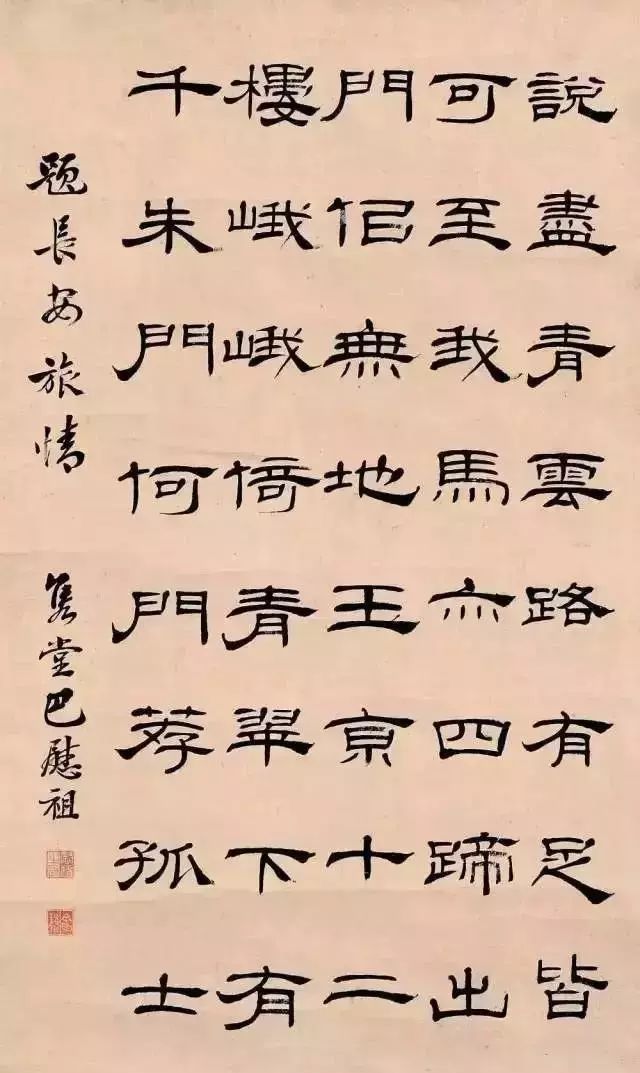 說盡青雲路有足皆
可至我馬亦四蹄出
門似無地玉京十二
樓峨峨倚青翠下有
千朱門何門薦孤士
題長安旅情 雋堂巴慰祖